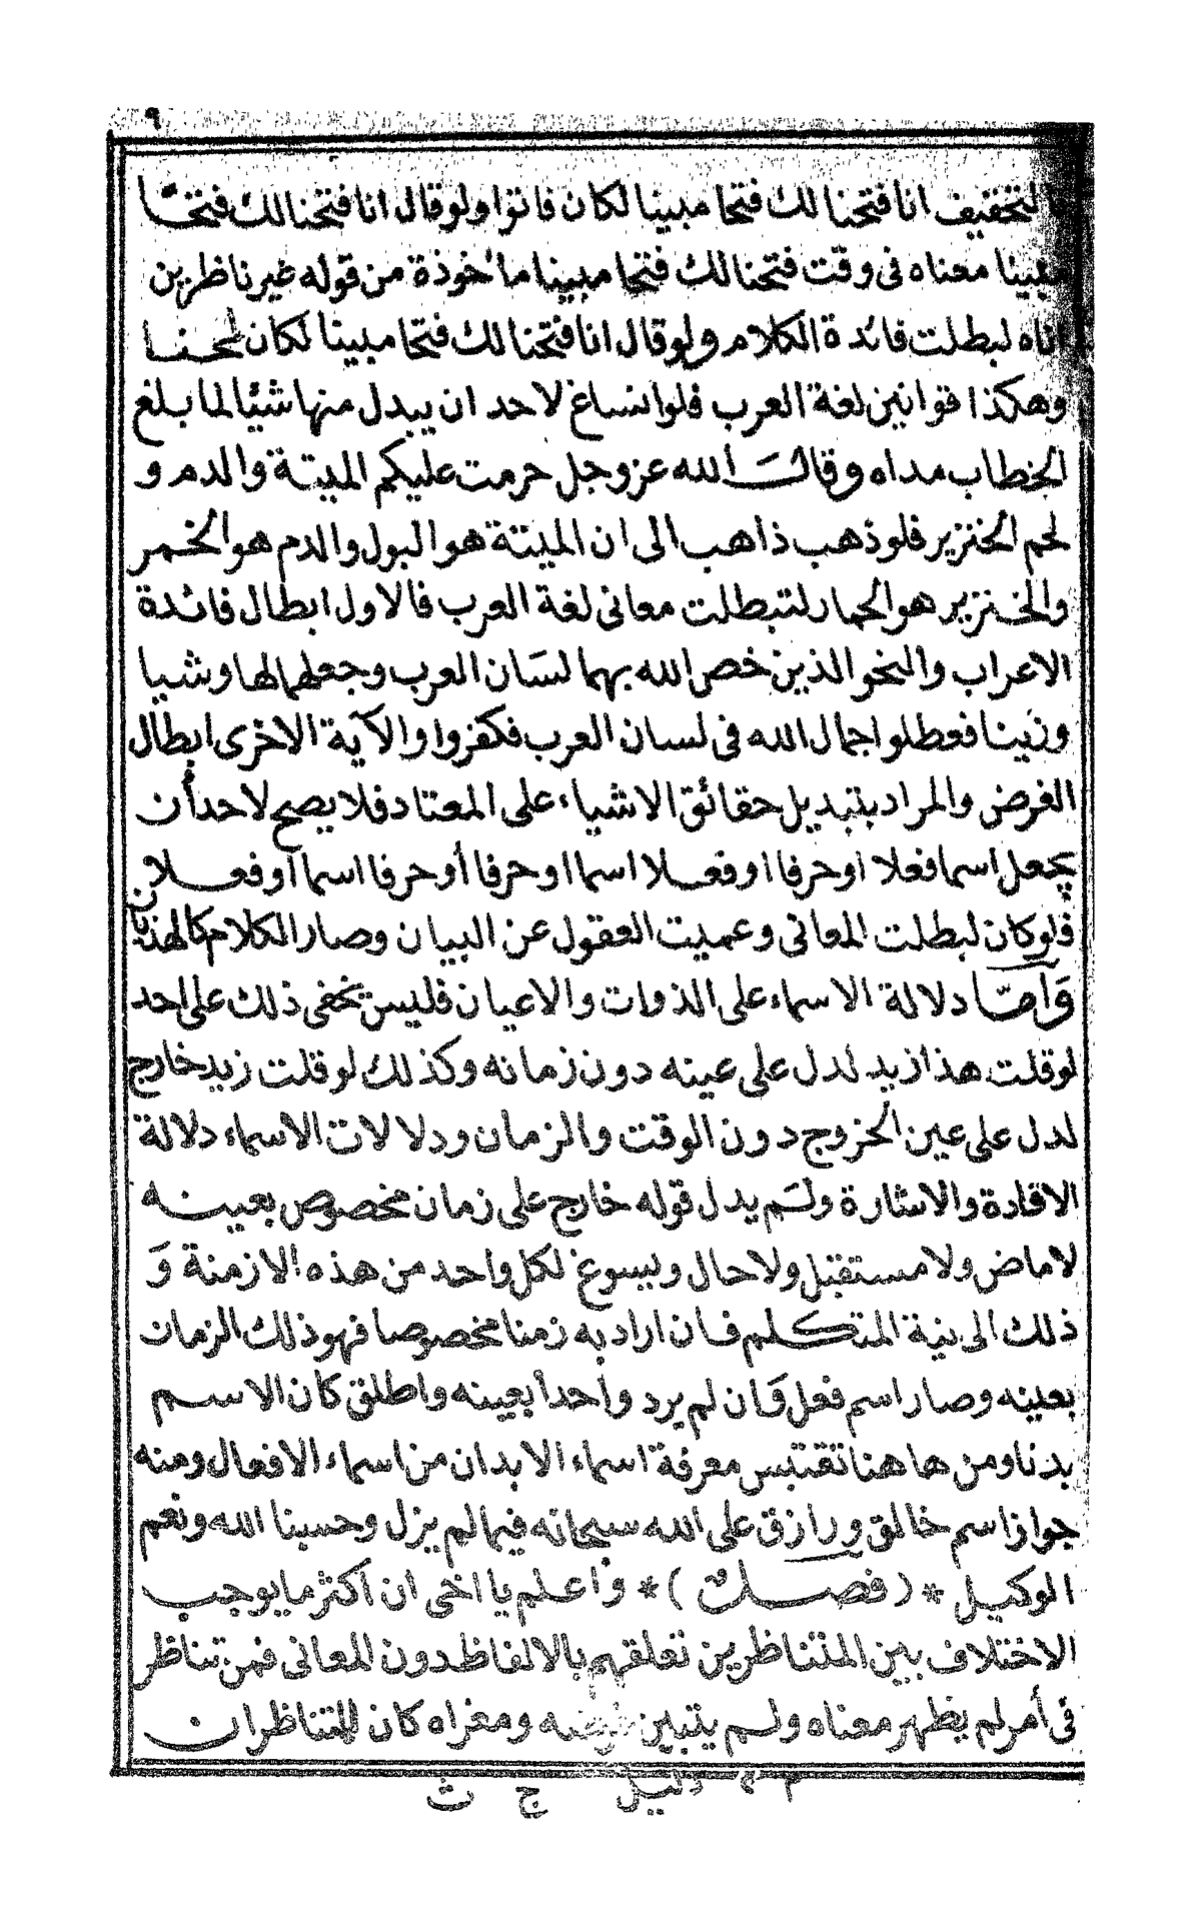 ٩
بالتخفيف انا فتحنا لك فتحا مبينا لكان فاتوا ولو قال انا فتحنا لك فتحا
مبينا معناه فى وقت فتحنا لك فتحا مبينا مأخوذة من قوله غير ناظرين
اناه لبطلت فائدة الكلام ولو قال انا فتحنا لك فتحا مبينا لكان لحنا
وهكذا قوانين لغة العرب فلو انساغ لاحد ان يبدل منها شيئا لما بلغ
الخطاب مداه وقال الله عز وجل حرمت عليكم الميتة والدم و
لحم الخنزير فلو ذهب ذاهب الى ان الميتة هو البول والدم هو الخمر
والخنزير هو الحمار لتبطلت معانى لغة العرب فالاول ابطال فائدة
الاعراب والنحو الذين خص الله بهما لسان العرب وجعلهما لها وشيا
وزينا فعطلوا جمال الله فى لسان العرب فكفروا والآية الاخرى ابطال
الغرض والمراد بتبديل حقائق الاشياء على المعتاد فلا يصح لاحد أن
يجعل اسما فعلا او حرفا او فعلا اسما او حرفا أو حرفا اسما او فعلا
فلو كان لبطلت المعانى وعميت العقول عن البيان وصار الكلام كالهذيان
وأمّا دلالة الاسماء على الذوات والاعيان فليس يخفى ذلك على احد
لو قلت هذا زيد لدل على عينه دون زمانه وكذلك لو قلت زيد خارج
لدل على عين الخروج دون الوقت والزمان ودلالات الاسماء دلالة
الافادة والاشارة ولم يدل قوله خارج على زمان مخصوص بعينه
لا ماض ولا مستقبل ولا حال ويسوغ لكل واحد من هذه الازمنة و
ذلك الى نية المتكلم فان اراد به زمنا مخصوصا فهو ذلك الزمان
بعينه وصار اسم فعل وان لم يرد واحدا بعينه واطلق كان الاسم
بدنا ومن هاهنا تقتبس معرفة اسماء الابدان من اسماء الافعال ومنه
جواز اسم خالق ورازق على الله سبحانه فيما لم يزل وحسبنا الله ونعم
الوكيل * ( فصل ) * واعلم يا اخى ان اكثر ما يوجب
الاختلاف بين المتناظرين تعلقهم بالالفاظ دون المعانى فمن تناظر
فى أمر لم يظهر معناه ولم يتبين غرضه ومغزاه كان المتناظران
م ٢ دليل ج ث